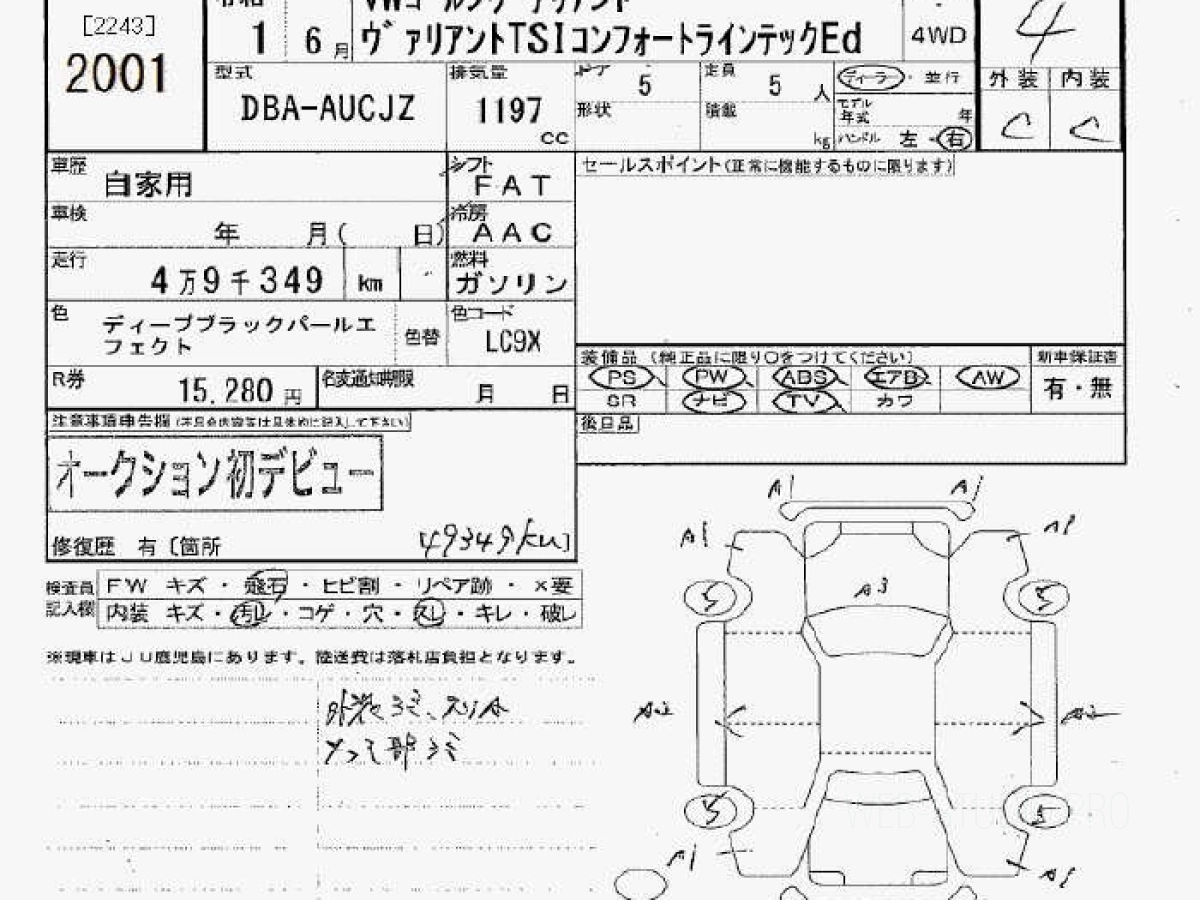 [2243]
2001
令和
1 6月
VWゴルフヴァリアント
ヴァリアントTSIコンフォートラインテックEd
4WD
4
型式
DBA-AUCJZ
排気量
1197
cc
ドア 5
形状
定員 5 人
積載 kg
ディーラー・並行
モデル年式 年
ハンドル 左 右
外装 内装
C C
車歴 自家用
シフト FAT
車検 年 月( 日)
冷房 AAC
走行 4万9千349 km
燃料 ガソリン
色 ディープブラックパールエ
フェクト
色替
色コード LC9X
R券 15,280 円
名変通知期限 月 日
セールスポイント(正常に機能するものに限ります)
装備品 (純正品に限り○をつけてください)
PS PW ABS エアB AW
SR ナビ TV カワ
新車保証書
有・無
後日品
注意事項申告欄(不具合内容等は具体的に記入して下さい)
オークション初デビュー
修復歴 有〔箇所 49349km]
検査員
記入欄
FW キズ・飛石・ヒビ割・リペア跡・×要
内装 キズ・汚レ・コゲ・穴・スレ・キレ・破レ
※現車はJU鹿児島にあります。陸送費は落札店負担となります。
A1 A1
A1 A1
5 5
A3
A2 A2
5 5
A1 A1